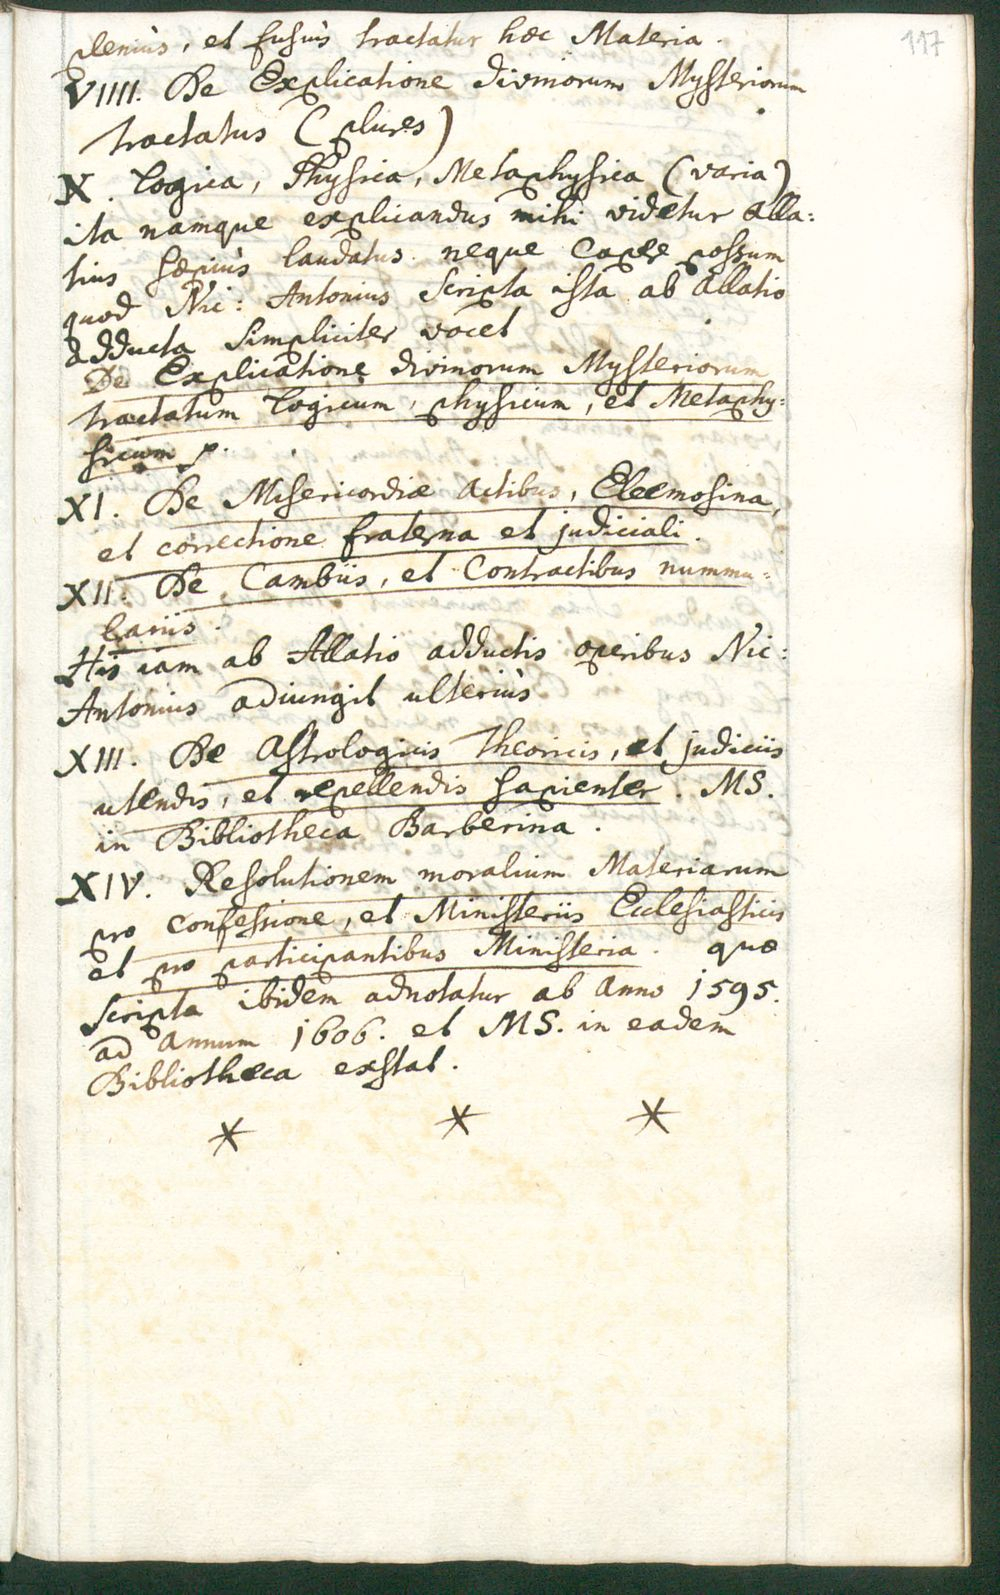 117
plenius, et fusius tractatur hæc Materia.
VIIII. De Explicatione divinorum Mysteriorum
tractatus (plures)
X. Logica, Physica, Metaphysica (varia)
ita namque explicandus mihi videtur Alla:
tius sæpius laudatus. neque capere possum
quod Nic: Antonius Scripta ista ab Allatio
adducta simpliciter vocet
De Explicatione divinorum Mysteriorum
tractatum Logicum, physicum, et Metaphy:
sicum p.
XI. De Misericordiæ Actibus, Eleemosina,
et correctione fraterna et judiciali.
XII. De Cambiis, et Contractibus nummu=
lariis.
His iam ab Allatio adductis operibus Nic:
Antonius adiungit ulteriùs
XIII. De Astrologicis Theoricis, et judiciis
utendis, et repellendis sapienter. MS.
in Bibliotheca Barberina.
XIV. Resolutionem moralium Materiarum
pro confessione, et Ministeriis Ecclesiasticis
et pro participantibus Ministeria. quæ
scripta ibidem adnotatur ab Anno 1595.
ad Annum 1606. et MS. in eadem
Bibliotheca exstat.
* * *